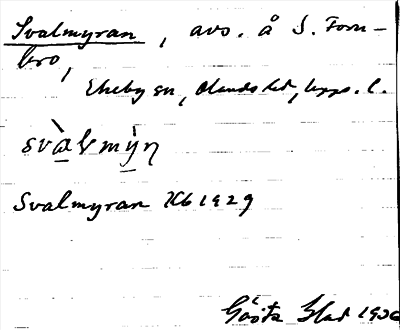 Svalmyran, avs. å S. Forn-
bro,
Ekeby sn, Olands hd, Upps. l.
svàlmỳn
Svalmyran Kb 1929
Gösta 1936